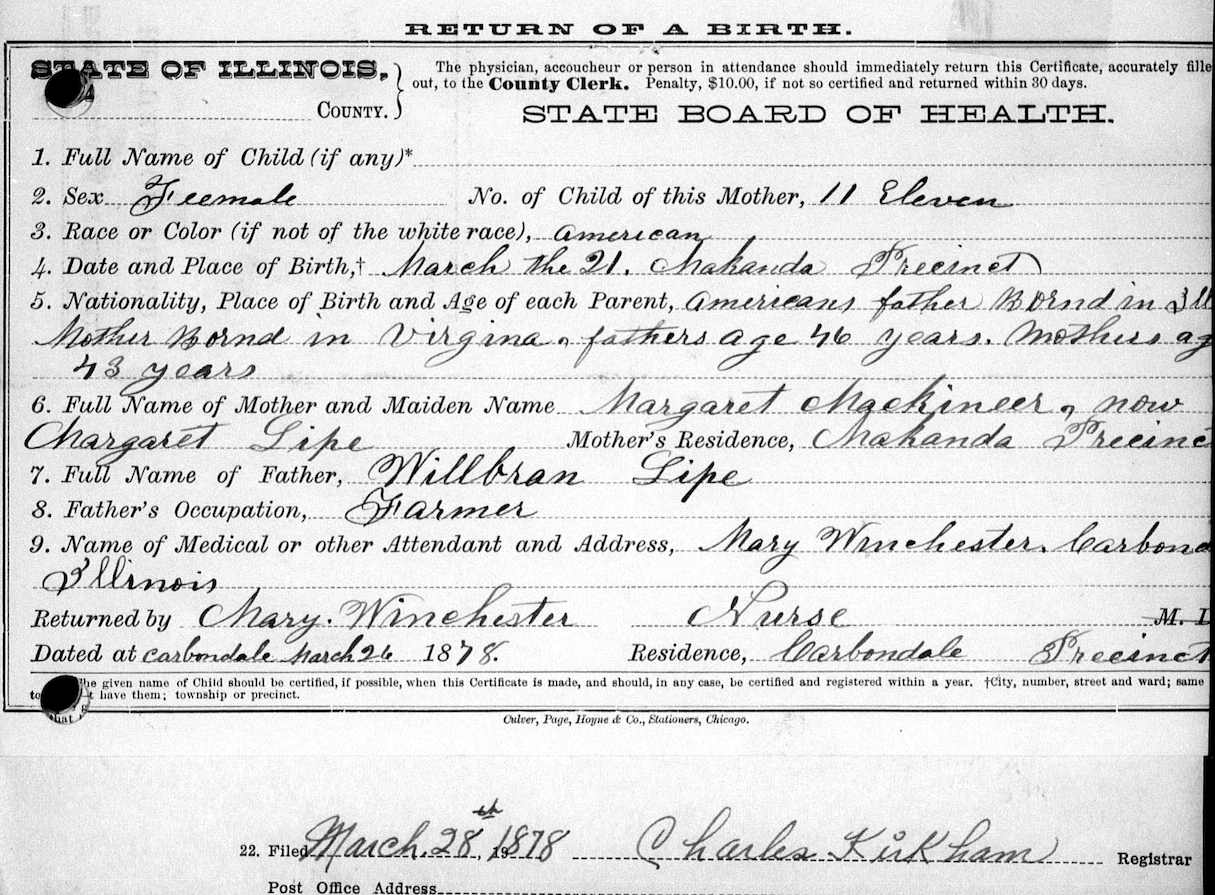 RETURN OF A BIRTH.
STATE OF ILLINOIS,
COUNTY.
The physician, accoucheur or person in attendance should immediately return this Certificate, accurately fille
out, to the County Clerk. Penalty, $10.00, if not so certified and returned within 30 days.
STATE BOARD OF HEALTH.
1. Full Name of Child (if any)*
2. Sex Feemale No. of Child of this Mother, 11 Eleven
3. Race or Color (if not of the white race), american
4. Date and Place of Birth,† March the 21. Makanda Precinct
5. Nationality, Place of Birth and Age of each Parent, americans father Bornd in Ill
Mother Bornd in Virgina, fathers age 46 years. Mothers ag
43 years
6. Full Name of Mother and Maiden Name Margaret Mackineer, now
Margaret Lipe Mother's Residence, Makanda Precinc
7. Full Name of Father, Willbran Lipe
8. Father's Occupation, Farmer
9. Name of Medical or other Attendant and Address, Mary Winchester. Carbond
Illinois
Returned by Mary. Winchester Nurse M. D
Dated at carbondale March 26 1878. Residence, Carbondale Precinct
he given name of Child should be certified, if possible, when this Certificate is made, and should, in any case, be certified and registered within a year. †City, number, street and ward; same
to t have them; township or precinct.
that
Culver, Page, Hoyne & Co., Stationers, Chicago.
22. Filed March. 28th, 1878 Charles Kirkham Registrar
Post Office Address